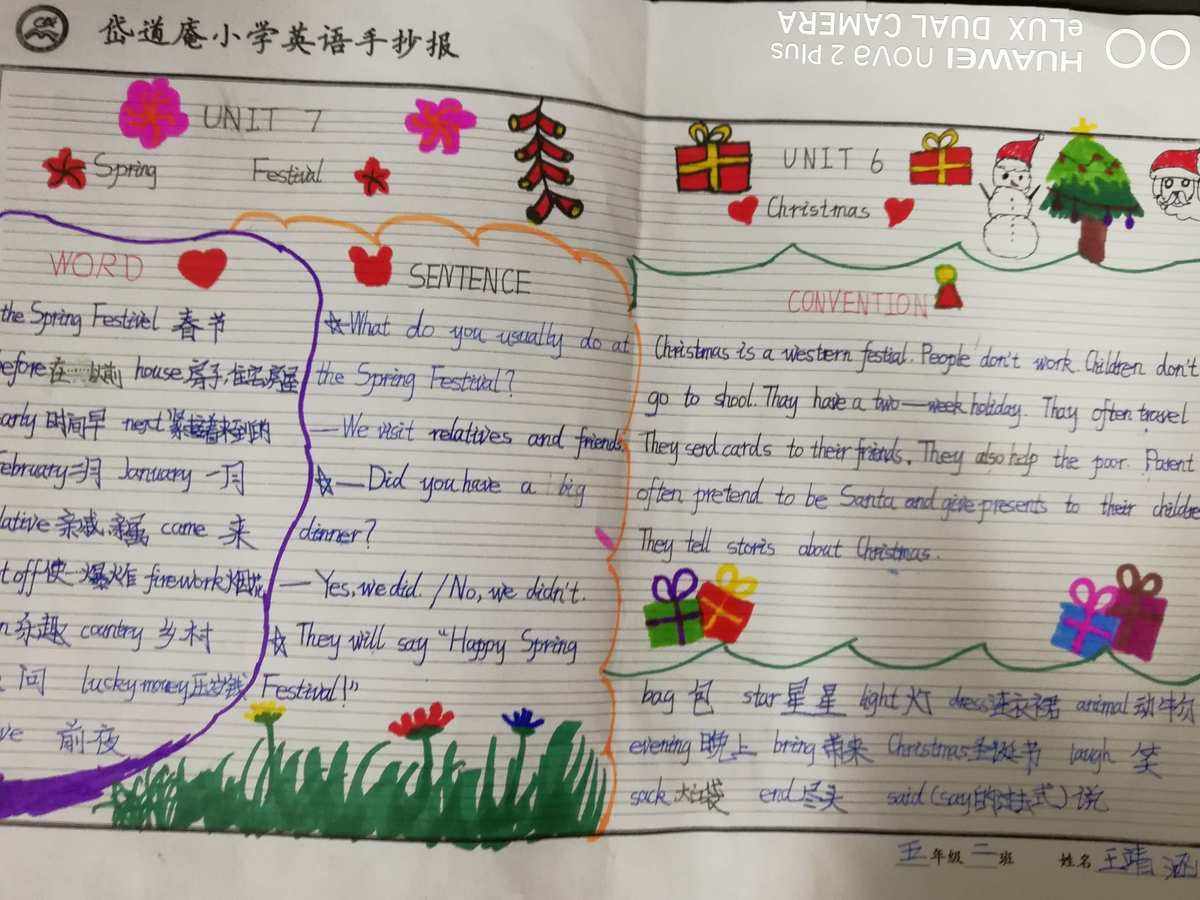 岱道庵小学英语手抄报
HUAWEI nova 2 Plus
eLUX DUAL CAMERA
UNIT 7
Spring Festival
WORD
the Spring Festivel 春节
before 在……以前 house 房子,住宅,房屋
arly 时间早 next 紧接着来到的
February 二月 January 一月
lative 亲戚,亲属 came 来
t off 使……爆炸 firework 烟花
n 乐趣 country 乡村
问 lucky money 压岁钱
ve 前夜
SENTENCE
☆—What do you usually do at
the Spring Festival?
—We visit relatives and friends
☆—Did you have a big
dinner?
—Yes, we did. /No, we didn't.
☆ They will say "Happy Spring
Festival!"
UNIT 6
Christmas
CONVENTION
Christmas is a western festial. People don't work. Children don't
go to shool. Thay have a two-week holiday. Thay often travel
They send cards to their friends. They also help the poor. Parent
often pretend to be Santa and give presents to their childre
They tell storis about Christmas.
bag 包 star 星星 light 灯 dress 连衣裙 animal 动物
evening 晚上 bring 带来 Christmas 圣诞节 laugh 笑
sack 大口袋 end 尽头 said (say的过去式) 说
五年级二班 姓名 王靖涵